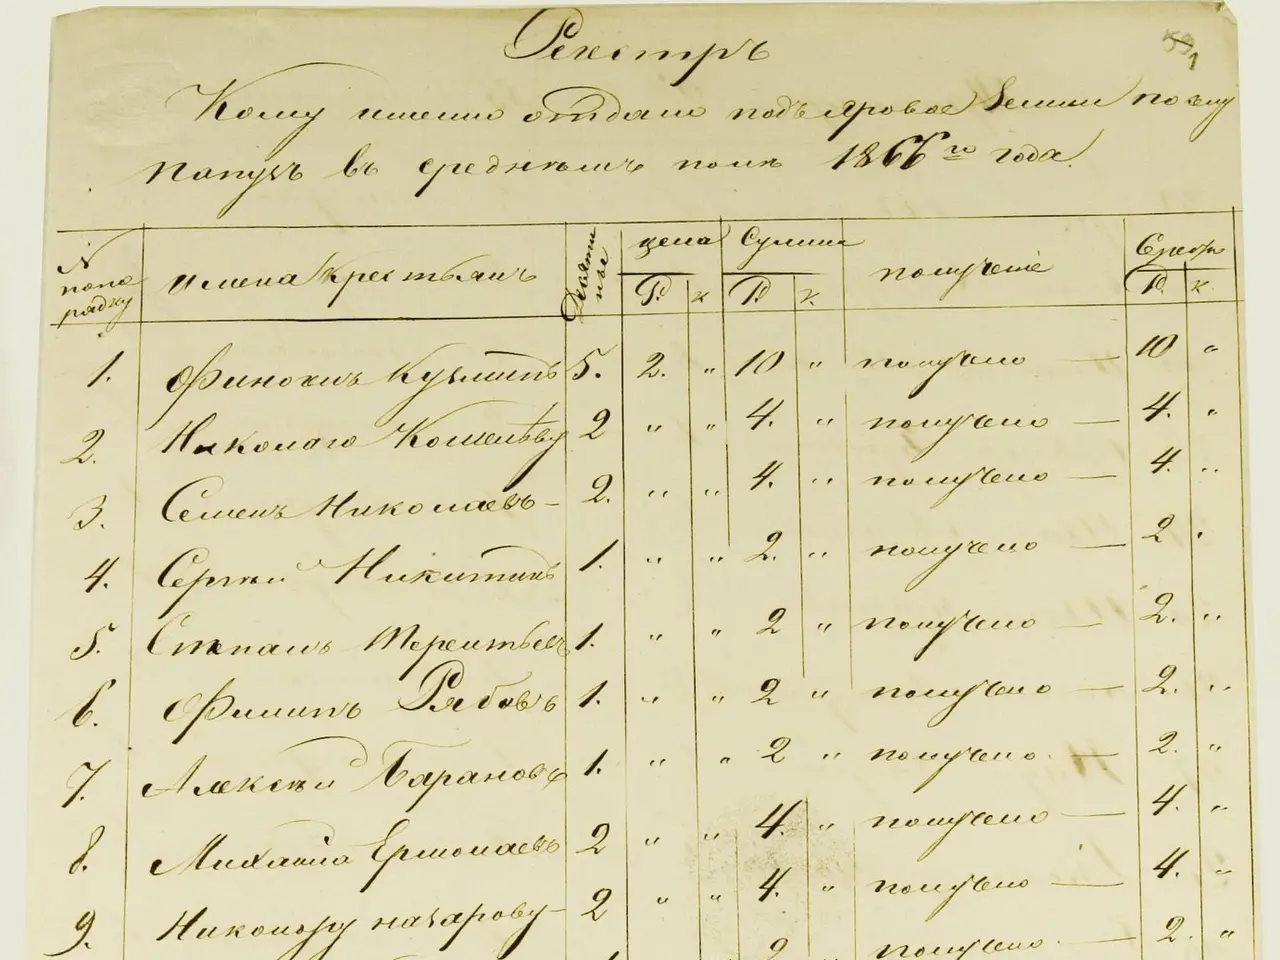 Реестръ
Кому именно отдано подъ яровое земли по
въ среднемъ поле 1866го года.
N попо рядку имена Крестьянъ Десяти ные цена Сумма получение
Р. к Р. к. Р. к.
1. Финогенъ Кузминъ 5. 2. " 10 " получено — 10 "
2. Николаю Кошелѣву 2 " " 4. " получено — 4. "
3. Семенъ Николаевъ – 2. " " 4. " получено — 4. "
4. Сергѣй Никитинъ 1. " " 2. " получено — 2 "
5. Степанъ Терентьевъ 1. " " 2 " получено — 2. "
6. Филипъ Рябовъ 1. " " 2 " получено — 2. "
7. Алексѣй Барановъ 1. " " 2 " получено. — 2. "
8. Михайла Ермолаевъ 2 " " 4. " получено — 4. "
9. Никонору назарову – 2 " " 4. " получено — 4. "
2 получено. — 2. "